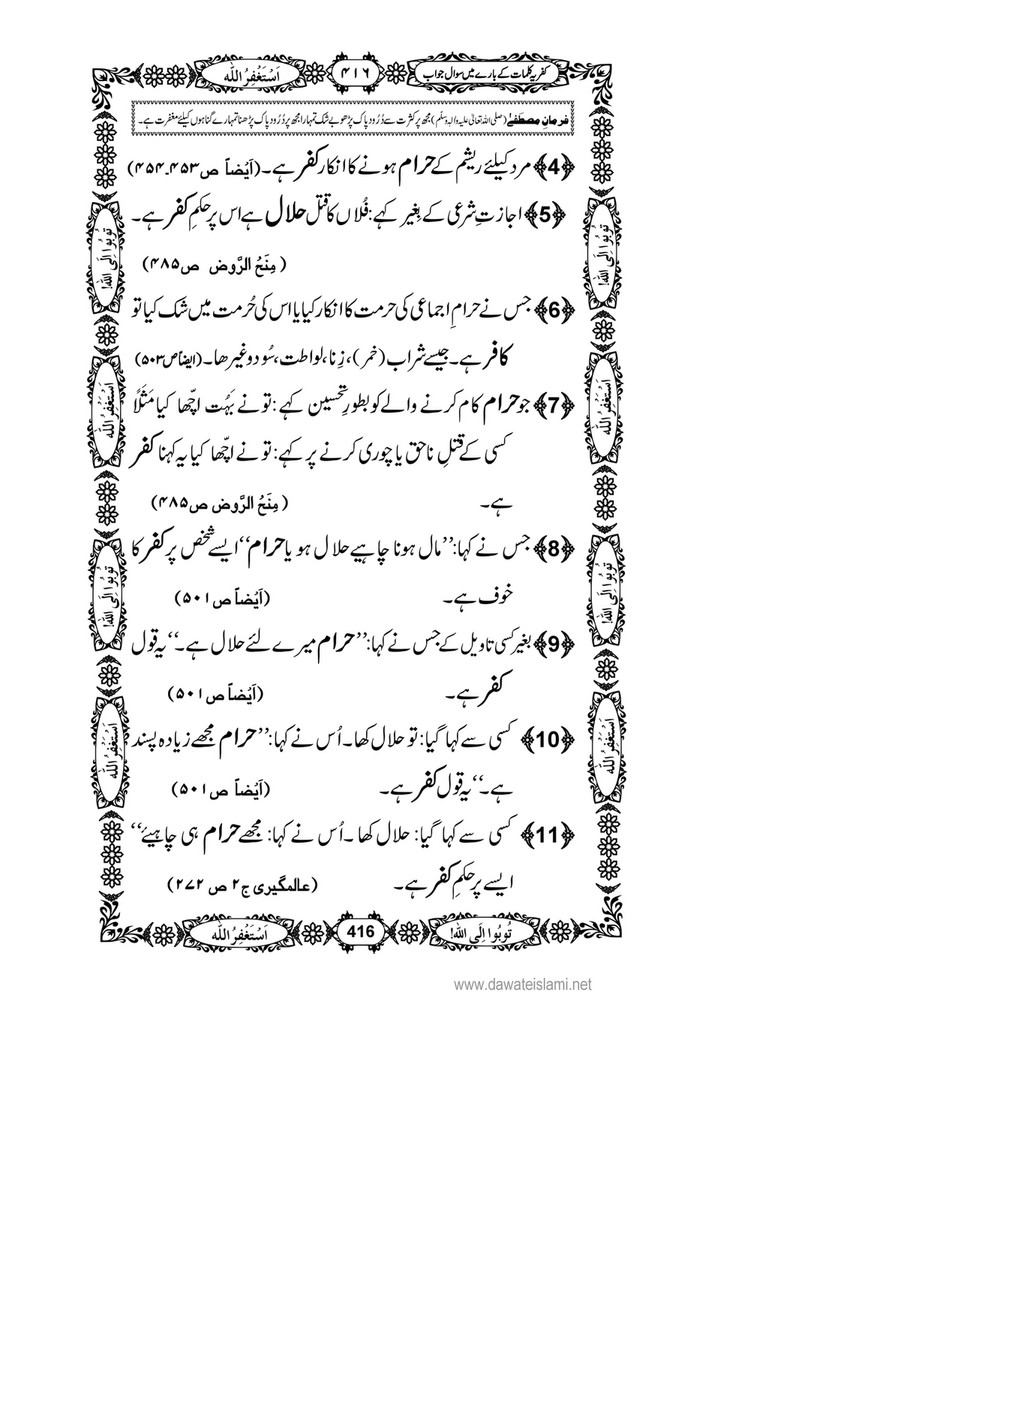 کفریہ کلمات کے بارے میں سوال جواب
۴۱۶
اَسْتَغْفِرُ اللّٰه
فرمانِ مصطَفٰے (صلی اللہ تعالیٰ علیہ والہٖ وسلّم) مجھ پر کثرت سے دُرُودِ پاک پڑھو بے شک تمہارا مجھ پر دُرُودِ پاک پڑھنا تمہارے گناہوں کیلئے مغفرت ہے۔
﴿4﴾ مرد کیلئے ریشم کے حرام ہونے کا انکار کفر ہے۔ (اَیْضاً ص ۴۵۳۔۴۵۴)
﴿5﴾ اجازتِ شرعی کے بغیر کہے: فُلاں کا قتل حلال ہے اس پر حکمِ کفر ہے۔
(مِنَحُ الرَّوض ص۴۸۵)
﴿6﴾ جس نے حرامِ اجماعی کی حرمت کا انکار کیا یا اس کی حُرمت میں شک کیا تو
کافر ہے۔ جیسے شراب (خمر)، زِنا، لواطت، سُود وغیرھا۔ (ایضاً ص۵۰۳)
﴿7﴾ جو حرام کام کرنے والے کو بطورِ تحسین کہے: تو نے بَہُت اچّھا کیا مَثَلاً
کسی کے قتلِ ناحق یا چوری کرنے پر کہے: تو نے اچّھا کیا یہ کہنا کفر
ہے۔ (مِنَحُ الرَّوض ص۴۸۵)
﴿8﴾ جس نے کہا: ’’مال ہونا چاہیے حلال ہو یا حرام‘‘ ایسے شخص پر کفر کا
خوف ہے۔ (اَیْضاً ص ۵۰۱)
﴿9﴾ بغیر کسی تاویل کے جس نے کہا: ’’حرام میرے لئے حلال ہے۔‘‘ یہ قول
کفر ہے۔ (اَیْضاً ص ۵۰۱)
﴿10﴾ کسی سے کہا گیا: تو حلال کھا۔ اُس نے کہا: ’’حرام مجھے زیادہ پسند
ہے۔‘‘ یہ قول کفر ہے۔ (اَیْضاً ص ۵۰۱)
﴿11﴾ کسی سے کہا گیا: حلال کھا۔ اُس نے کہا: مجھے حرام ہی چاہیئے‘‘
ایسے پر حکمِ کفر ہے۔ (عالمگیری ج۲ ص ۲۷۲)
تُوبُوا اِلَی اللّٰه!
اَسْتَغْفِرُ اللّٰه
تُوبُوا اِلَی اللّٰه!
اَسْتَغْفِرُ اللّٰه
تُوبُوا اِلَی اللّٰه!
اَسْتَغْفِرُ اللّٰه
تُوبُوا اِلَی اللّٰه!
اَسْتَغْفِرُ اللّٰه
تُوبُوا اِلَی اللّٰه!
416
اَسْتَغْفِرُ اللّٰه
www.dawateislami.net